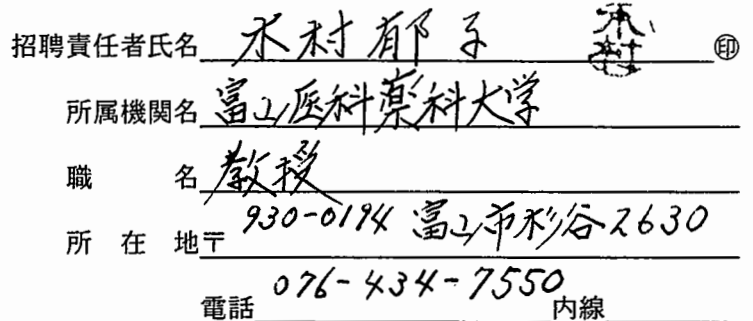 招聘責任者氏名 木村郁子 木村 ㊞
所属機関名 富山医科薬科大学
職 名 教授
所 在 地〒 930-0194 富山市杉谷2630
電話 076-434-7550 内線